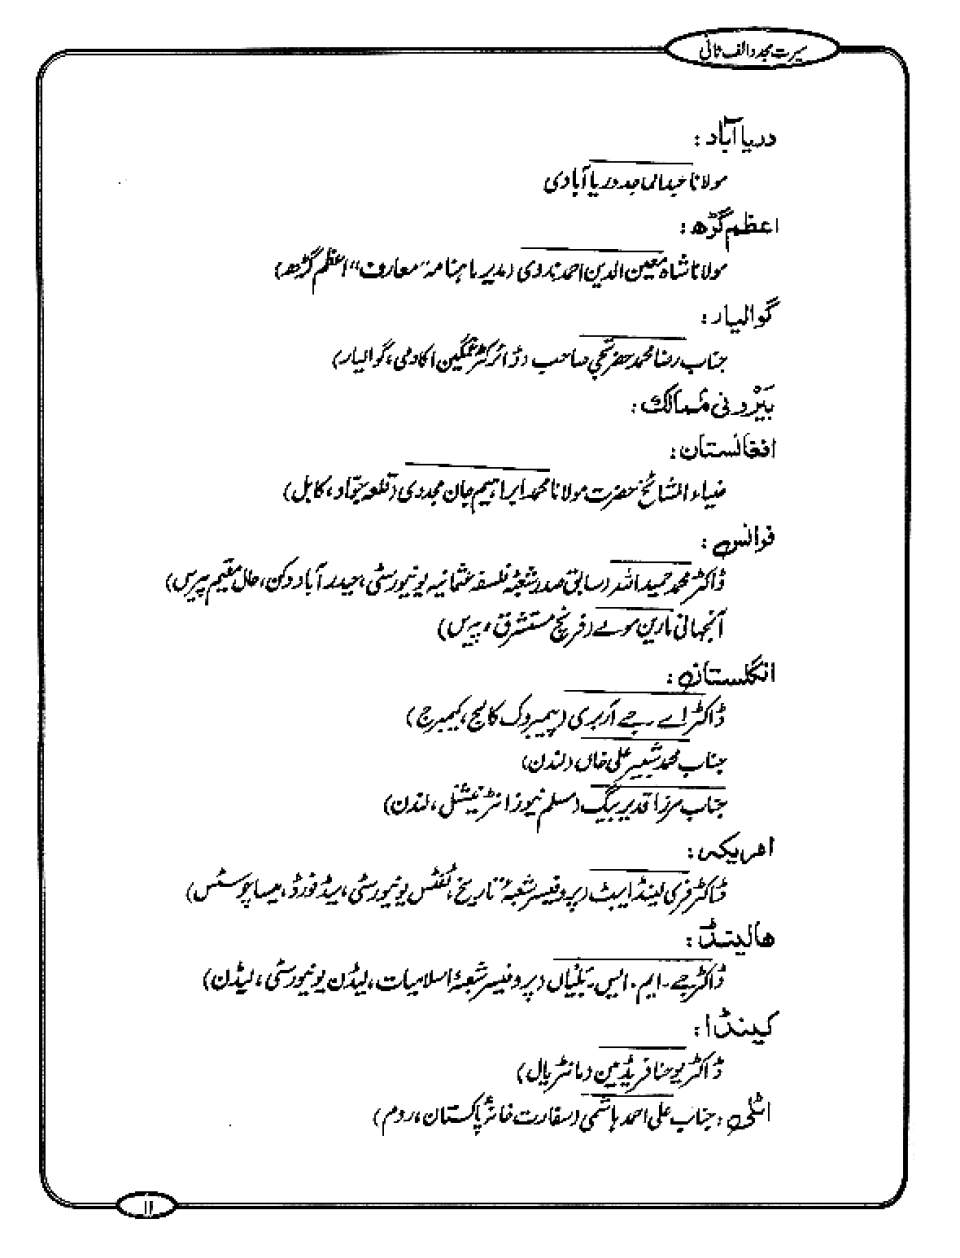 سیرت مجدد الف ثانی
دریاآباد :
مولانا عبدالماجد دریاآبادی
اعظم گڑھ :
مولانا شاہ معین الدین احمد ندوی (مدیر ماہنامہ "معارف" اعظم گڑھ)
گوالیار :
جناب رضا محمد حضرت جی صاحب (ڈائرکٹر غمگین اکادمی، گوالیار)
بیرونی ممالک :
افغانستان :
ضیاء المشائخ حضرت مولانا محمد ابراہیم جان مجددی (قلعہ جواد، کابل)
فرانس :
ڈاکٹر محمد حمید اللہ (سابق صدر شعبۂ فلسفہ عثمانیہ یونیورسٹی، حیدر آباد دکن، حال مقیم پیرس)
آنجہانی مارین مولے (فرنچ مستشرق، پیرس)
انگلستان :
ڈاکٹر اے ۔ جے آربری (پیمبروک کالج، کیمبرج)
جناب محمد شبیر علی خاں (لندن)
جناب مرزا قدیر بیگ (مسلم نیوز انٹرنیشنل، لندن)
امریکہ :
ڈاکٹر فری لینڈ ایبٹ (پروفیسر شعبۂ تاریخ، ٹفٹس یونیورسٹی، میڈفورڈ، میساچوسٹس)
ھالینڈ :
ڈاکٹر جے ۔ ایم ۔ ایس ۔ بلیاں (پروفیسر شعبۂ اسلامیات، لیڈن یونیورسٹی، لیڈن)
کینڈا :
ڈاکٹر یوحنا فریڈ مین (مانٹریال)
اٹلی : جناب علی احمد ہاشمی (سفارت خانۂ پاکستان، روم)
١١